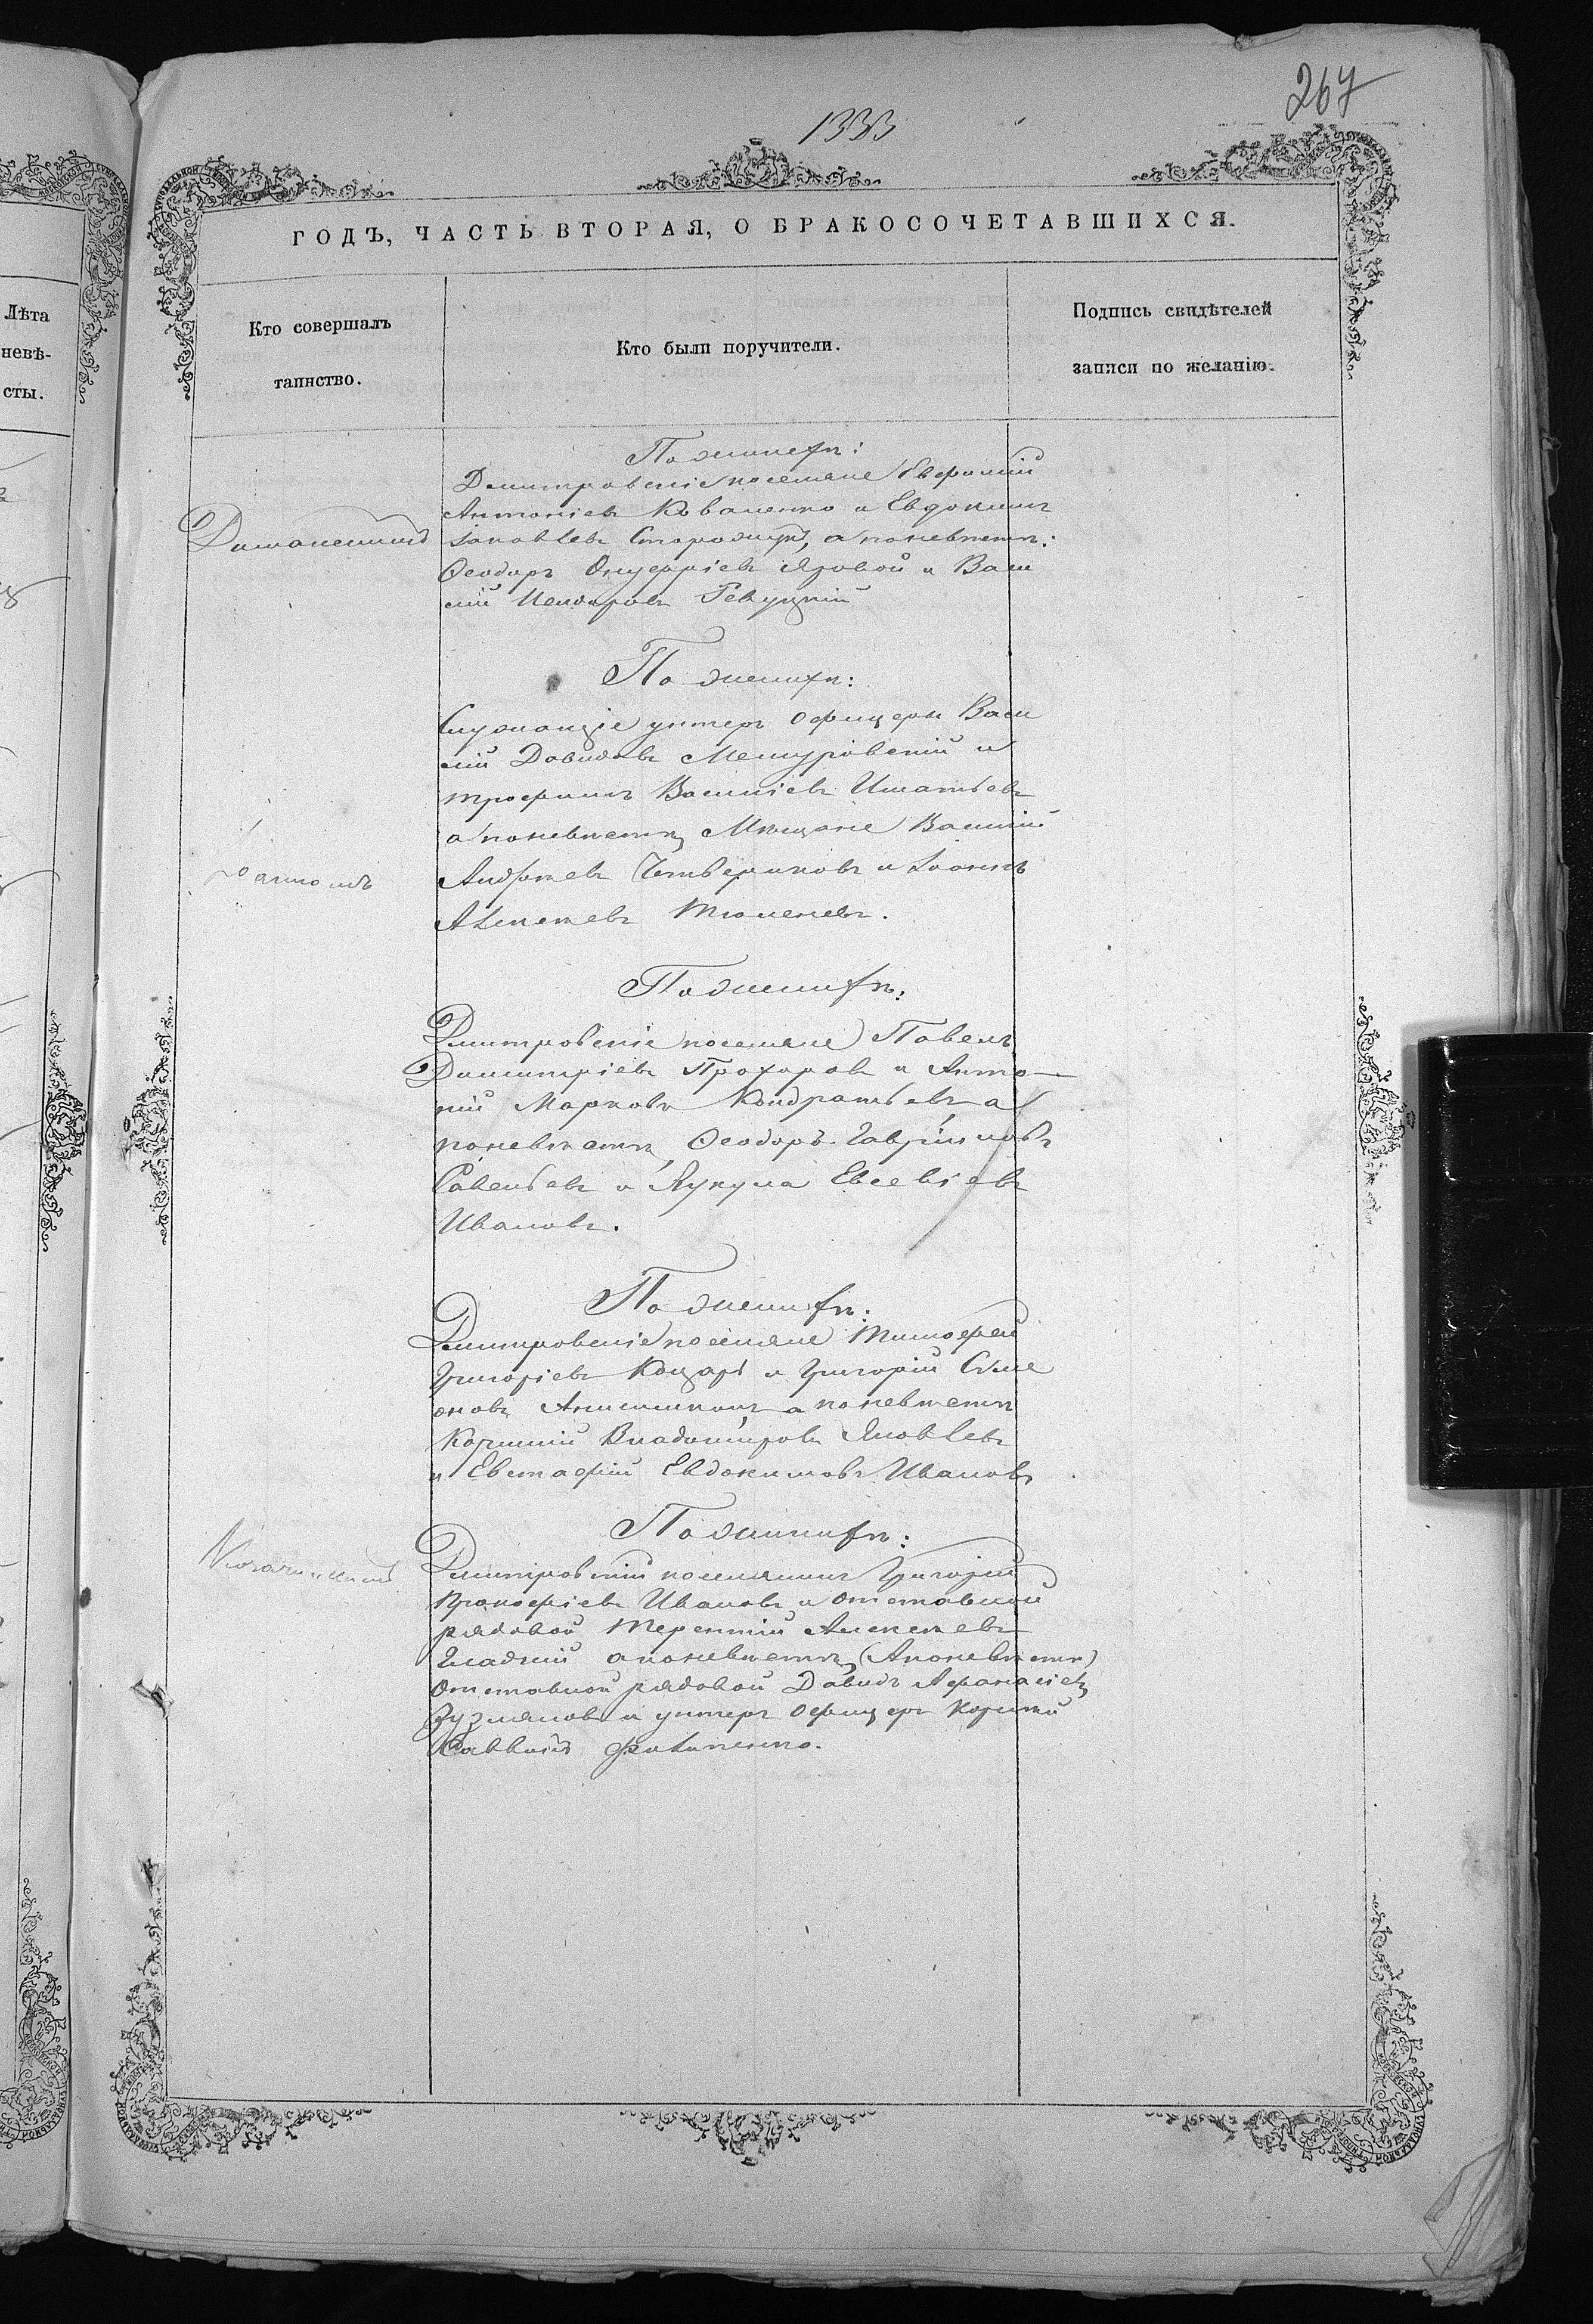 267
1333
ГОДЪ, ЧАСТЬ ВТОРАЯ, О БРАКОСОЧЕТАВШИХСЯ.
Лѣта
невѣ-
сты.
Кто совершалъ
таинство.
Кто были поручители.
Подпись свидѣтелей
записи по желанію.
По женихѣ:
Дмитровскіе поселяне Евфимій
Антоніевъ Коваленко и Евдокимъ
Іаковлевъ Сторожукъ, а по невѣстѣ:
Ѳеодоръ Онуфріевъ Яровой и Васи
лій Исидоровъ Ревуцкій
По женихѣ:
Служащіе унтеръ офицеры Васи
лій Давидовъ и
Трофимъ Василіевъ Игнатьевъ
а по невѣстѣ, Мѣщане Василій
Андреевъ Четвериковъ и Іоаннъ
Алексѣевъ Тюменевъ.
По женихѣ:
Дмитровскіе поселяне Павелъ
Димитріевъ Прохоровъ и Анто-
ній Марковъ Кондратьевъ а
по невѣстѣ, Ѳеодоръ Гавріиловъ
Савельевъ и Лукула Евсевіевъ
Ивановъ.
По женихѣ:
Дмитровскіе поселяне Тимофей
Григоріевъ Коцарь и Григорій Симе
оновъ а по невѣстѣ
Корнилій Владиміровъ Яковлевъ
и Евстафій Евдокимовъ Ивановъ
По женихѣ:
Дмитровскій поселянинъ Григорій
Прокофіевъ Ивановъ и отставной
рядовой Терентій Алексѣевъ
Гладкій а по невѣстѣ, (А по невѣстѣ)
Отставной рядовой Давидъ Афанасіевъ
и унтеръ офицеръ
Саввинъ Филипенко.